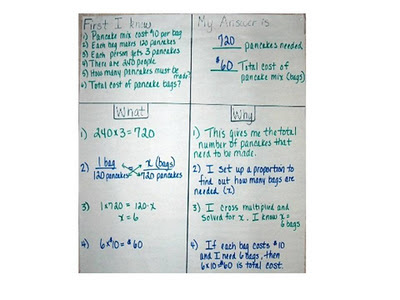 First I know
1) Pancake mix cost $10 per bag
2) Each bag makes 120 pancakes
3) Each person gets 3 pancakes
4) There are 240 people
5) How many pancakes must be made?
6) Total cost of pancake bags?
My Answer is
720 pancakes needed
$60 Total cost of
pancake mix (bags)
What
1) 240x3=720
2) 1 bag = x (bags)
120 pancakes 720 pancakes
3) 1x720 = 120·x
x=6
4) 6x$10=$60
Why
1) This gives me the total
number of pancakes that
need to be made.
2) I set up a proportion to
find out how many bags are
needed (x)
3) I cross multiplied and
solved for x. I know x=
6 bags
4) If each bag costs $10
and I need 6 bags, then
6x10=$60 is total cost.